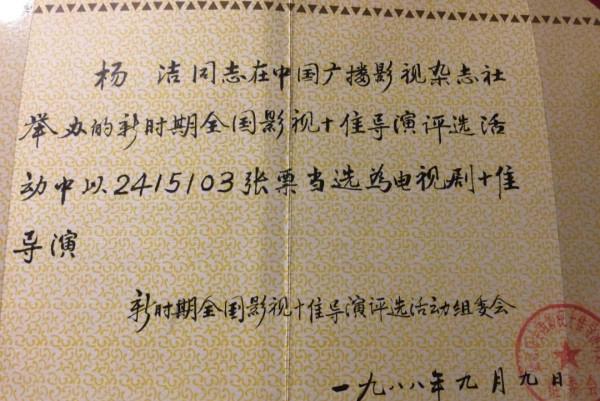 杨 洁同志在中国广播影视杂志社
举办的新时期全国影视十佳导演评选活
动中以2415103张票当选为电视剧十佳
导演
新时期全国影视十佳导演评选活动组委会
一九八八年九月九日